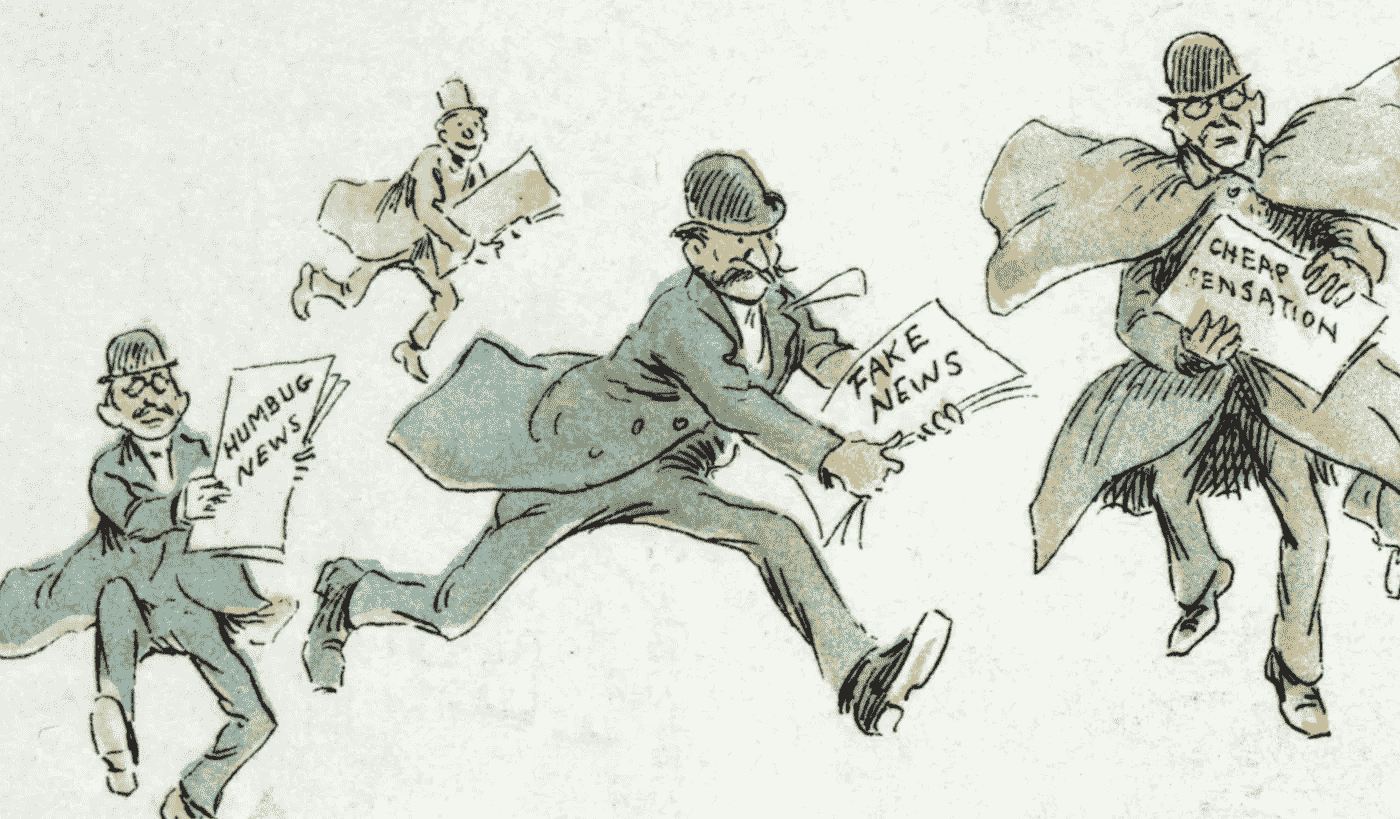 HUMBUG
NEWS
FAKE
NEWS
CHEAP
SENSATION